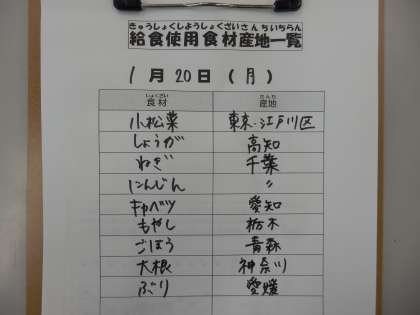 きゅうしょくしようしょくざいさんちいちらん
給食使用食材産地一覧
1月20日(月)
しょくざい さんち
食材 産地
小松菜 東京:江戸川区
しょうが 高知
ねぎ 千葉
にんじん 〃
キャベツ 愛知
もやし 栃木
ごぼう 青森
大根 神奈川
ぶり 愛媛